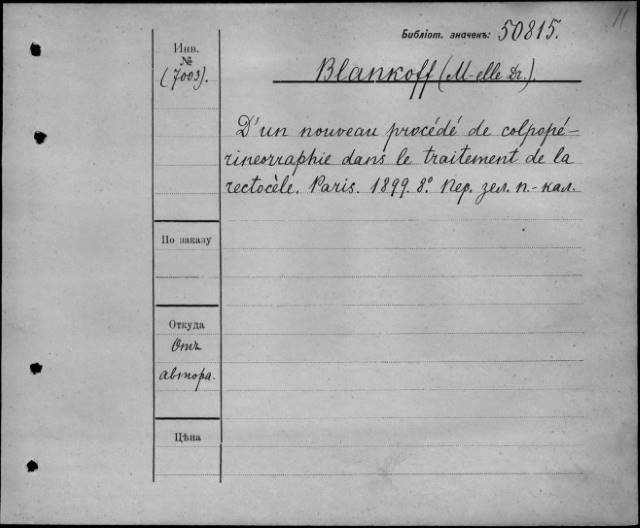 11
Библіот. значекъ: 50815.
Инв.
№
(7003).
Blankoff (M-elle Dr.).
D'un nouveau procédé de colpopé-
rineorraphie dans le traitement de la
rectocèle. Paris. 1899. 8º. Пер. зел. п.-кал.
По заказу
Откуда
Отъ
автора.
Цѣна